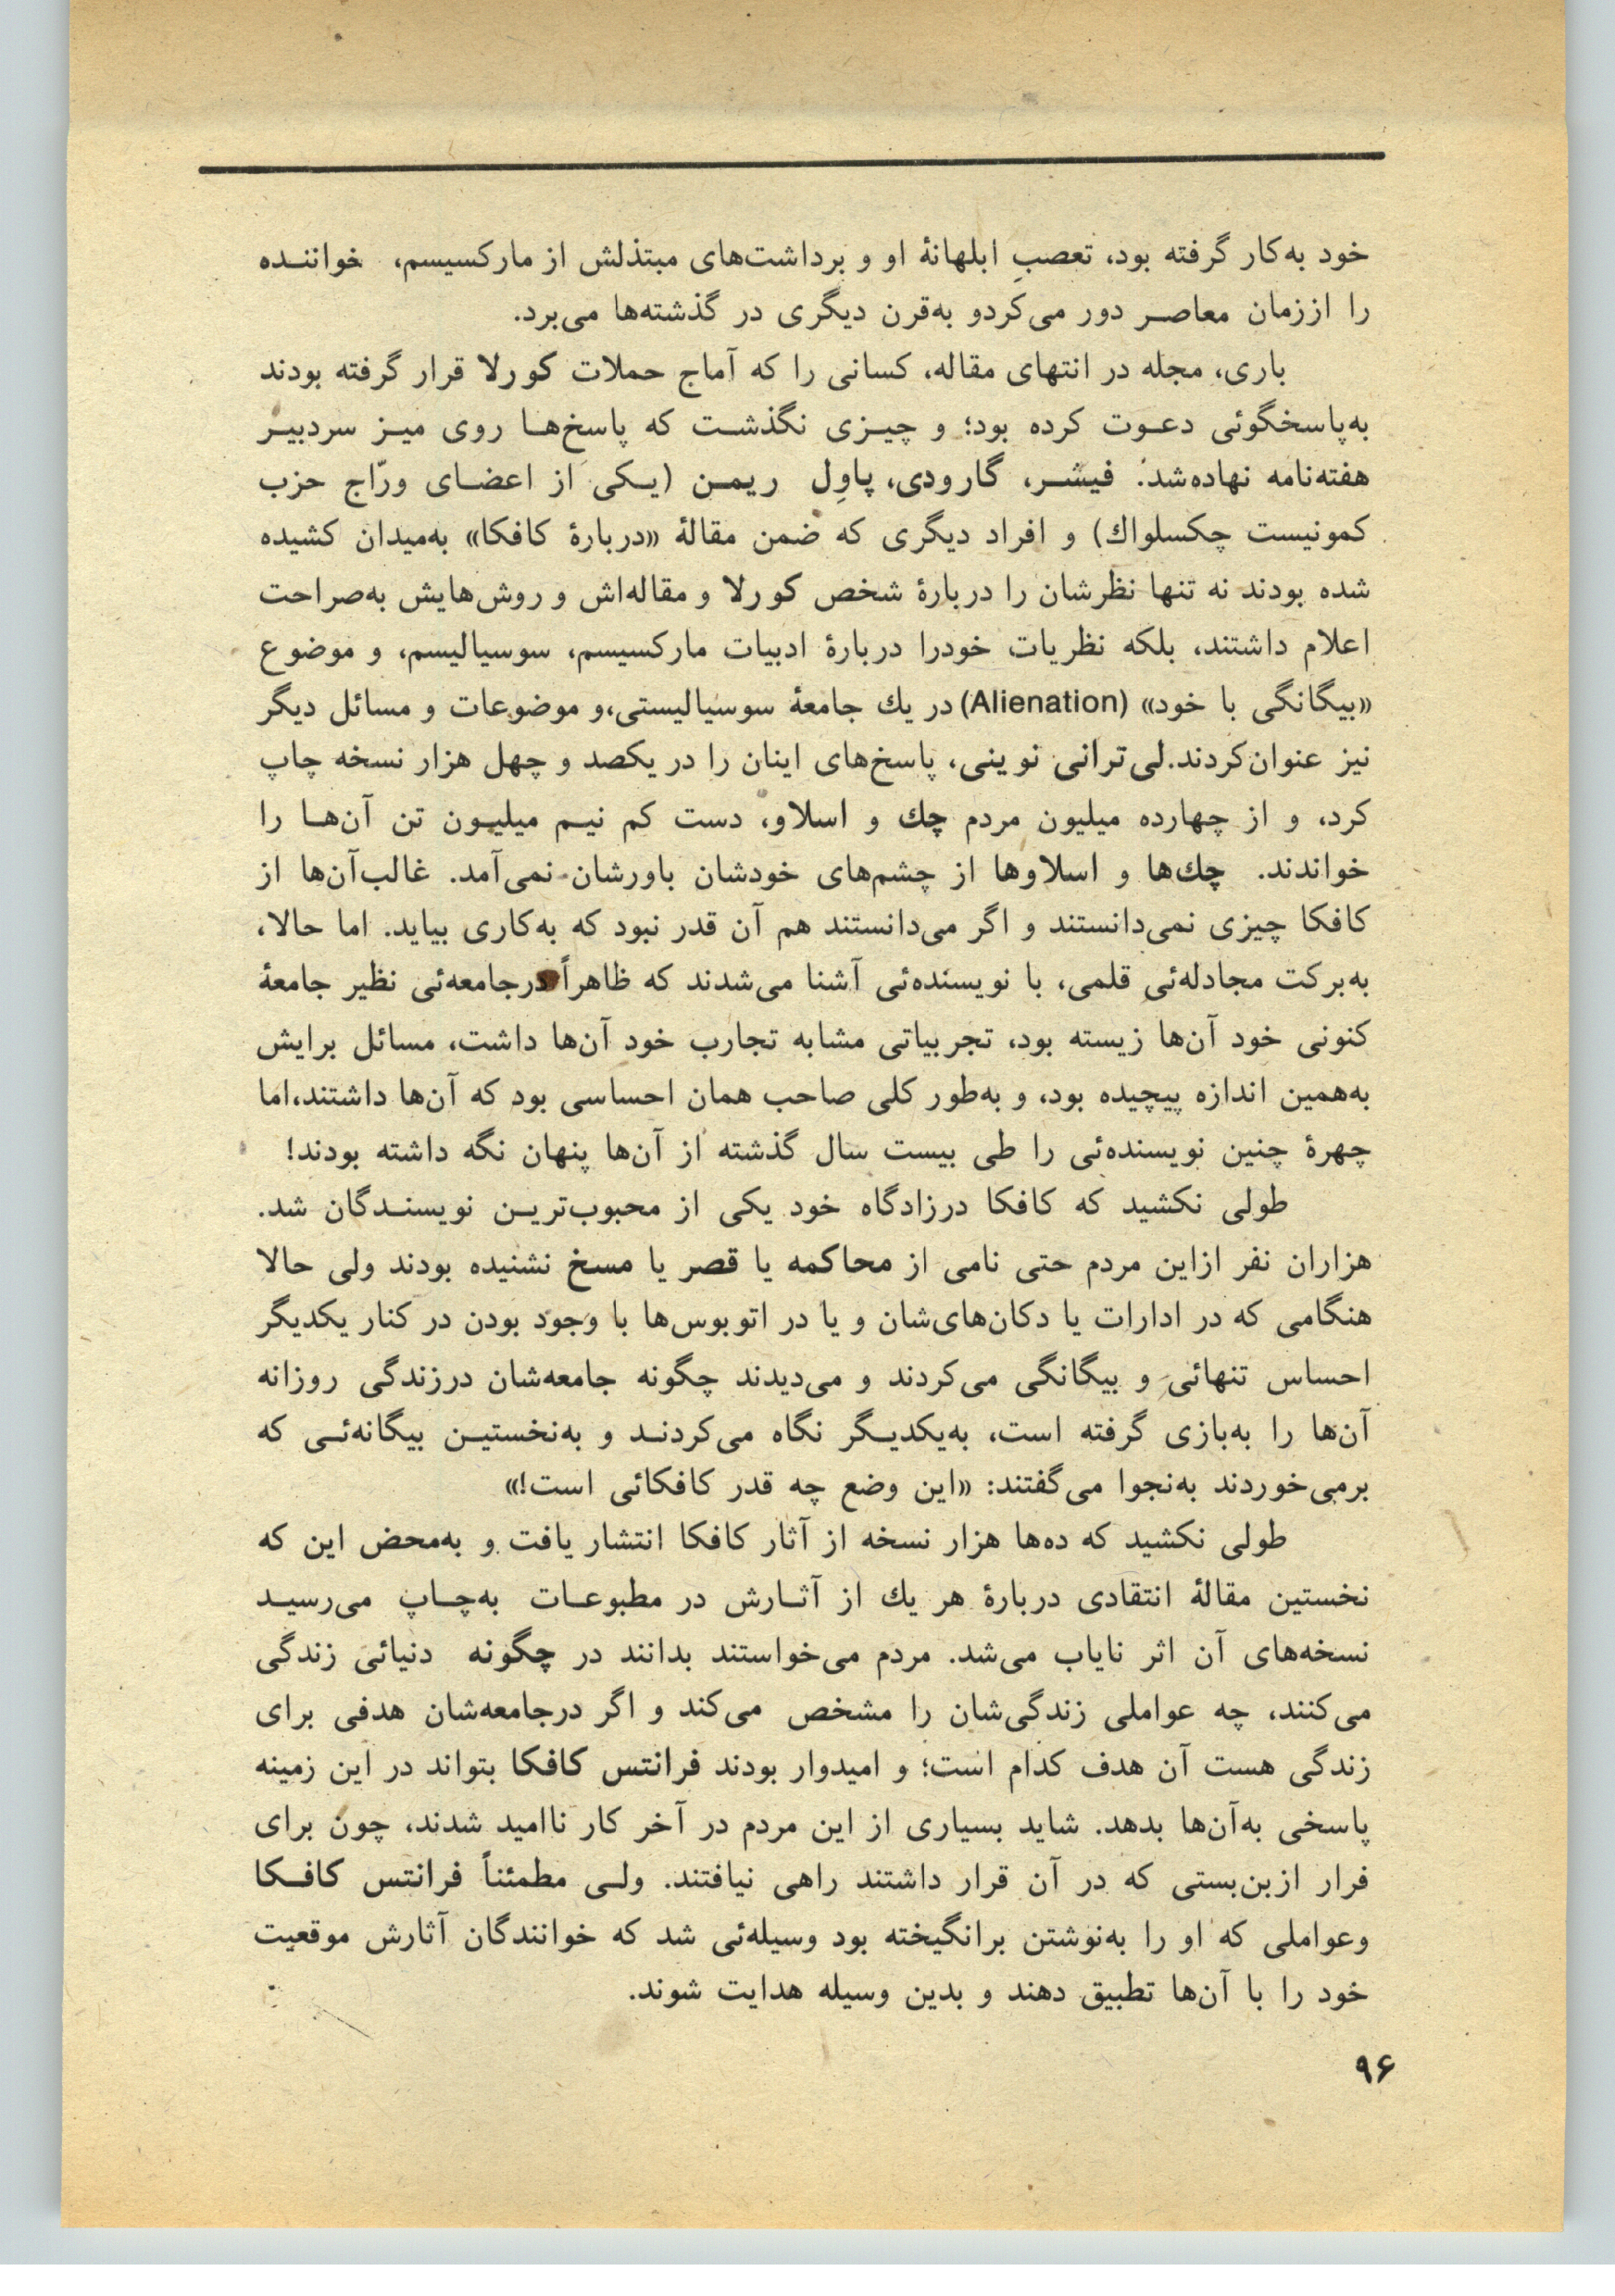 خود به‌کار گرفته بود، تعصبِ ابلهانهٔ او و برداشت‌های مبتذلش از مارکسیسم، خواننـده
را اززمان معاصـر دور می‌کردو به‌قرن دیگری در گذشته‌ها می‌برد.
باری، مجله در انتهای مقاله، کسانی را که آماج حملات کورلا قرار گرفته بودند
به‌پاسخگوئی دعـوت کرده بود؛ و چیـزی نگذشـت که پاسخ‌هـا روی میـز سردبیـر
هفته‌نامه نهاده‌شد. فیشـر، گارودی، پاوِل ریمـن (یـکی از اعضـای ورّاج حزب
کمونیست چکسلواك) و افراد دیگری که ضمن مقالهٔ «دربارهٔ کافکا» به‌میدان کشیده
شده بودند نه تنها نظرشان را دربارهٔ شخص کورلا و مقاله‌اش و روش‌هایش به‌صراحت
اعلام داشتند، بلکه نظریات خودرا دربارهٔ ادبیات مارکسیسم، سوسیالیسم، و موضوع
«بیگانگی با خود» (Alienation) در یك جامعهٔ سوسیالیستی،و موضوعات و مسائل دیگر
نیز عنوان‌کردند.لی‌ترانی نوینی، پاسخ‌های اینان را در یکصد و چهل هزار نسخه چاپ
کرد، و از چهارده میلیون مردم چك و اسلاو، دست کم نیـم میلیـون تن آن‌هـا را
خواندند. چك‌ها و اسلاوها از چشم‌های خودشان باورشان نمی‌آمد. غالب‌آن‌ها از
کافکا چیزی نمی‌دانستند و اگر می‌دانستند هم آن قدر نبود که به‌کاری بیاید. اما حالا،
به‌برکت مجادله‌ئی قلمی، با نویسنده‌ئی آشنا می‌شدند که ظاهراً درجامعه‌ئی نظیر جامعهٔ
کنونی خود آن‌ها زیسته بود، تجربیاتی مشابه تجارب خود آن‌ها داشت، مسائل برایش
به‌همین اندازه پیچیده بود، و به‌طور کلی صاحب همان احساسی بود که آن‌ها داشتند،اما
چهرهٔ چنین نویسنده‌ئی را طی بیست سال گذشته از آن‌ها پنهان نگه داشته بودند!
طولی نکشید که کافکا درزادگاه خود یکی از محبوب‌تریـن نویسنـدگان شد.
هزاران نفر ازاین مردم حتی نامی از محاکمه یا قصر یا مسخ نشنیده بودند ولی حالا
هنگامی که در ادارات یا دکان‌های‌شان و یا در اتوبوس‌ها با وجود بودن در کنار یکدیگر
احساس تنهائی و بیگانگی می‌کردند و می‌دیدند چگونه جامعه‌شان درزندگی روزانه
آن‌ها را به‌بازی گرفته است، به‌یکدیـگر نگاه می‌کردنـد و به‌نخستیـن بیگانه‌ئـی که
برمی‌خوردند به‌نجوا می‌گفتند: «این وضع چه قدر کافکائی است!»
طولی نکشید که ده‌ها هزار نسخه از آثار کافکا انتشار یافت و به‌محض این که
نخستین مقالهٔ انتقادی دربارهٔ هر یك از آثـارش در مطبوعـات به‌چـاپ می‌رسیـد
نسخه‌های آن اثر نایاب می‌شد. مردم می‌خواستند بدانند در چگونه دنیائی زندگی
می‌کنند، چه عواملی زندگی‌شان را مشخص می‌کند و اگر درجامعه‌شان هدفی برای
زندگی هست آن هدف کدام است؛ و امیدوار بودند فرانتس کافکا بتواند در این زمینه
پاسخی به‌آن‌ها بدهد. شاید بسیاری از این مردم در آخر کار ناامید شدند، چون برای
فرار ازبن‌بستی که در آن قرار داشتند راهی نیافتند. ولـی مطمئناً فرانتس کافـکا
وعواملی که او را به‌نوشتن برانگیخته بود وسیله‌ئی شد که خوانندگان آثارش موقعیت
خود را با آن‌ها تطبیق دهند و بدین وسیله هدایت شوند.
۹۶